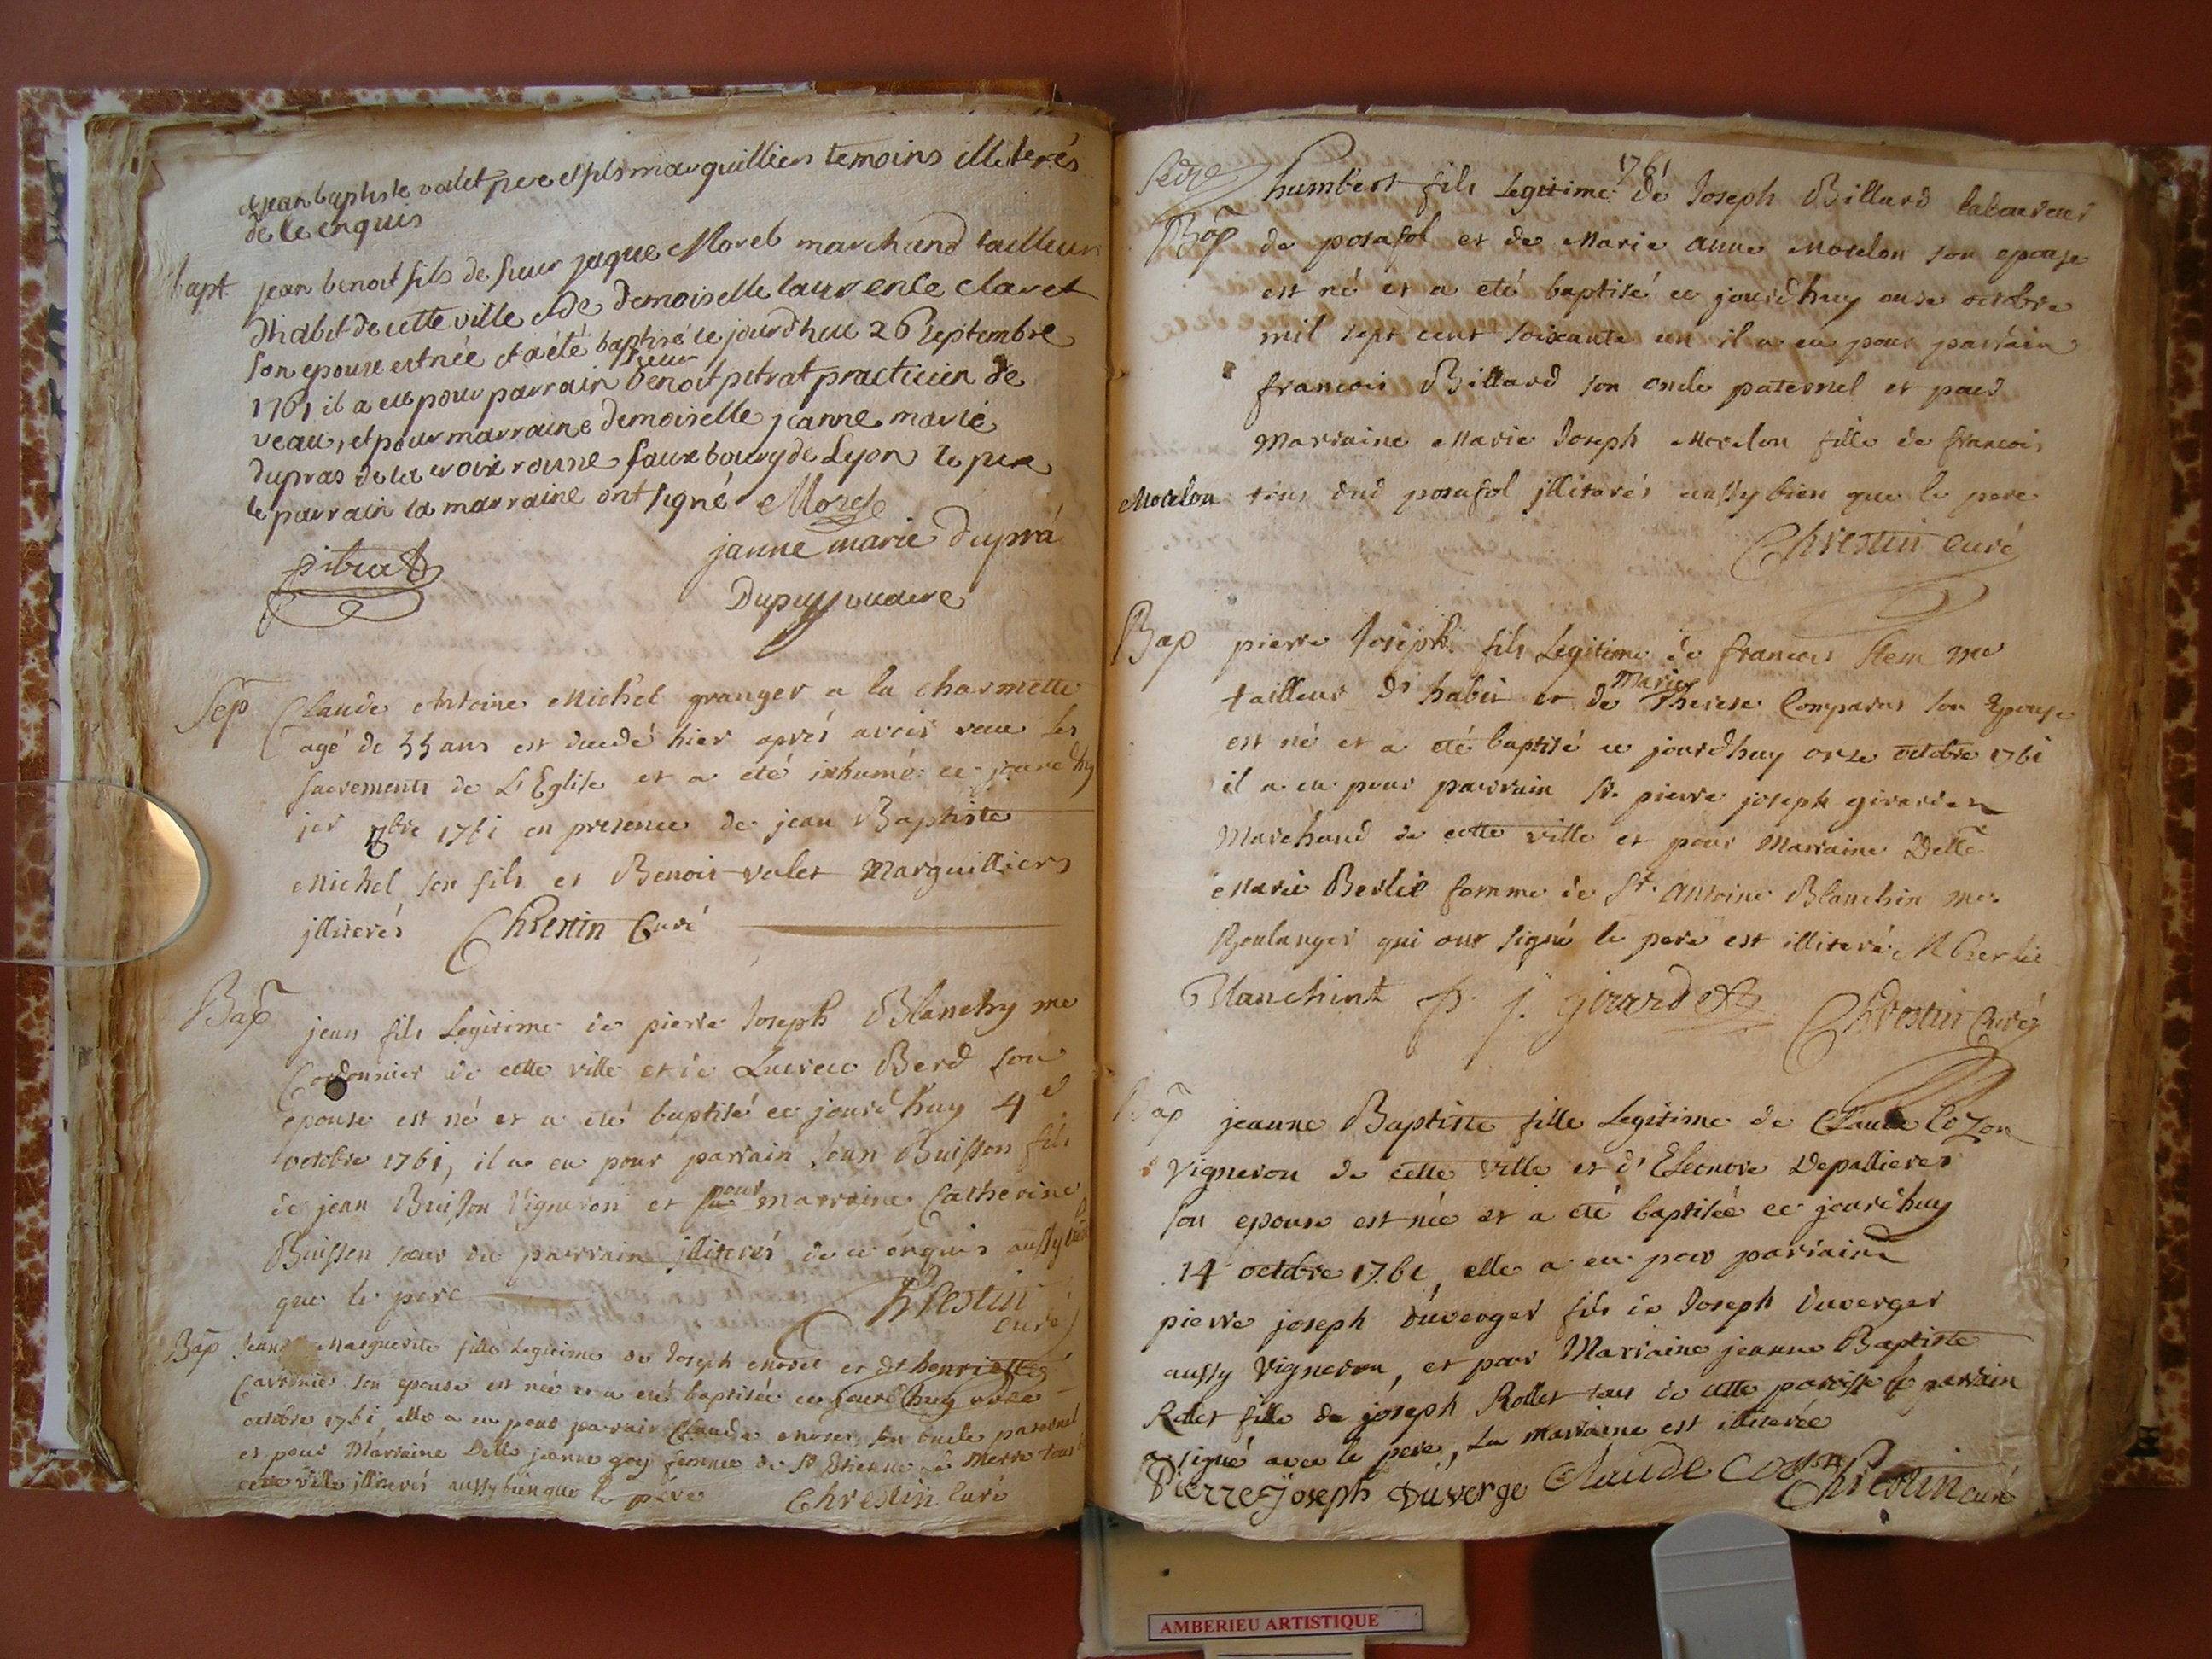 et jean baptiste valet pere et fils marguilliers temoins illiterés
de ce enquis
bapt. jean benoit fils de sieur jaque Morel marchand tailleur
d'habit de cette ville et de demoiselle laurence claret
son epouse est née et a été baptisé ce jourd'hui 26 septembre
sieur
1761 il a eu pour parrain benoit pitrat practicien de
veau, et pour marraine demoiselle jeanne marie
dupras de la croix rousse fauxbourg de Lyon le pere
le parrain la marraine ont signé Morel
janne marie duprá
pitrat
Dupuy vicaire
Sep Claude Antoine Michel granger a la charmette
agé de 55 ans est decedé hier aprés avoir recu les
sacrements de L'Eglise et a été inhumé ce jourdhuy
ier 8bre 1761 en presence de jean Baptiste
Michel son fils et Benoit valet Marguilliers
jlliterés Chrestin Curé
Bap jean fils Legitime de pierre Joseph Blanchy me
Cordonnier de cette ville et de Lucrece Berd son
epouse est né et a eté baptisé ce jourdhuy 4e
octobre 1761, il a eu pour parrain Jean Buisson fils
de jean Buisson Vigneron et pour marraine Catherine
Buisson sœur du parrain jlliterés de ce enquis aussy bien
que le pere Chrestin
curé
Bap Jeanne Marguerite fille Legitime de Joseph et dt henriette
son epouse est née et a eté baptisée ce jourdhuy onze
octobre 1761, elle a eu pour parrain Claude son oncle paternel
et pour Marraine Delle jeanne goy femme de Sr Etienne tous de
cette ville jlliterés aussy bien que le pére Chrestin Curé
1761
seize humbert fils Legitime de Joseph Billard laboureur
Bap de posafol et de Marie anne Morelon son epouse
est né et a eté baptisé ce jourdhuy onze octobre
mil sept cent soixante un il a eu pour parrain
francois Billard son oncle paternel et pour
Marraine Marie Joseph Morelon fille de francois
Morelon tous dud posafol jlliterés aussy bien que le pere
Chrestin curé
Bap pierre Joseph fils Legitime de francois Stem me
Marie
tailleur d'habit et de Therese Comparat son Epouse
est né et a eté baptisé ce jourdhuy onze octobre 1761
il a eu pour parrain Sr. pierre joseph girardet
Marchand de cette ville et pour Marraine Delle
Marie Berlie femme de Sr. Antoine Blanchin me.
Boulanger qui ont signé le pere est illiteré M Berlie
Blanchint p. j. girardet Chrestin Curé
Bap jeanne Baptiste fille Legitime de Claude Cozon
Vigneron de cette ville et d'Eleonore Depallieres
son epouse est née et a eté baptisée ce jourdhuy
14 octobre 1761, elle a eu pour parrain
pierre joseph duverger fils de Joseph Duverger
aussy Vigneron, et pour Marraine jeanne Baptiste
Rollet fille de joseph Rollet tous de cette paroisse le parrain
a signé avec le pere, la marraine est illiterée
Pierre Joseph Duverge Claude Cozon Chrestin curé
AMBERIEU ARTISTIQUE